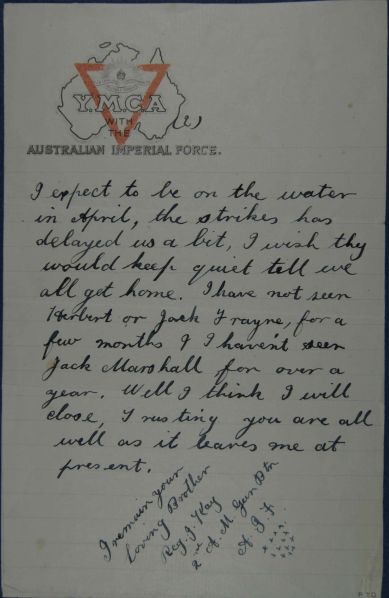 Y.M.C.A
WITH
THE
AUSTRALIAN IMPERIAL FORCE.
(2)
I expect to be on the water
in April, the strikes has
delayed us a bit, I wish they
would keep quiet tell we
all get home. I have not seen
Herbert or Jack Frayne, for a
few months & I haven't seen
Jack Marshall for over a
year. Well I think I will
close, Trusting you are all
well as it leaves me at
present.
I remain your
loving Brother
Reg. J. Kay
2nd A. M. Gun Btn
A. I. F.
x x x x
x x x x
x x x
P.T.O